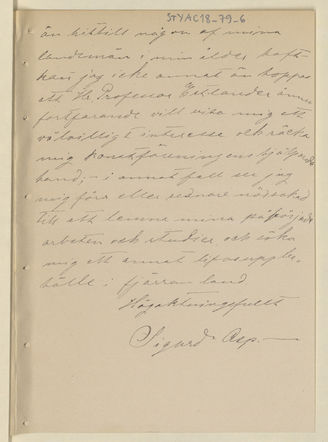 STYAC18-79-6
än hittills någon af mina
landsmän i min ålder haft –
kan jag icke annat än hoppas
att Hr Professor Estlander ännu
fortfarande vill visa mig ett
välvilligt interesse och räcka
mig konstföreningens hjälpande
hand; – i annat fall ser jag
mig förr eller sednare nödsakad
till att lemna mina påbörjade
arbeten och studier, och söka
mig ett annat lifsuppe-
hälle i fjärran land
Högaktningsfullt
Sigurd Asp. –